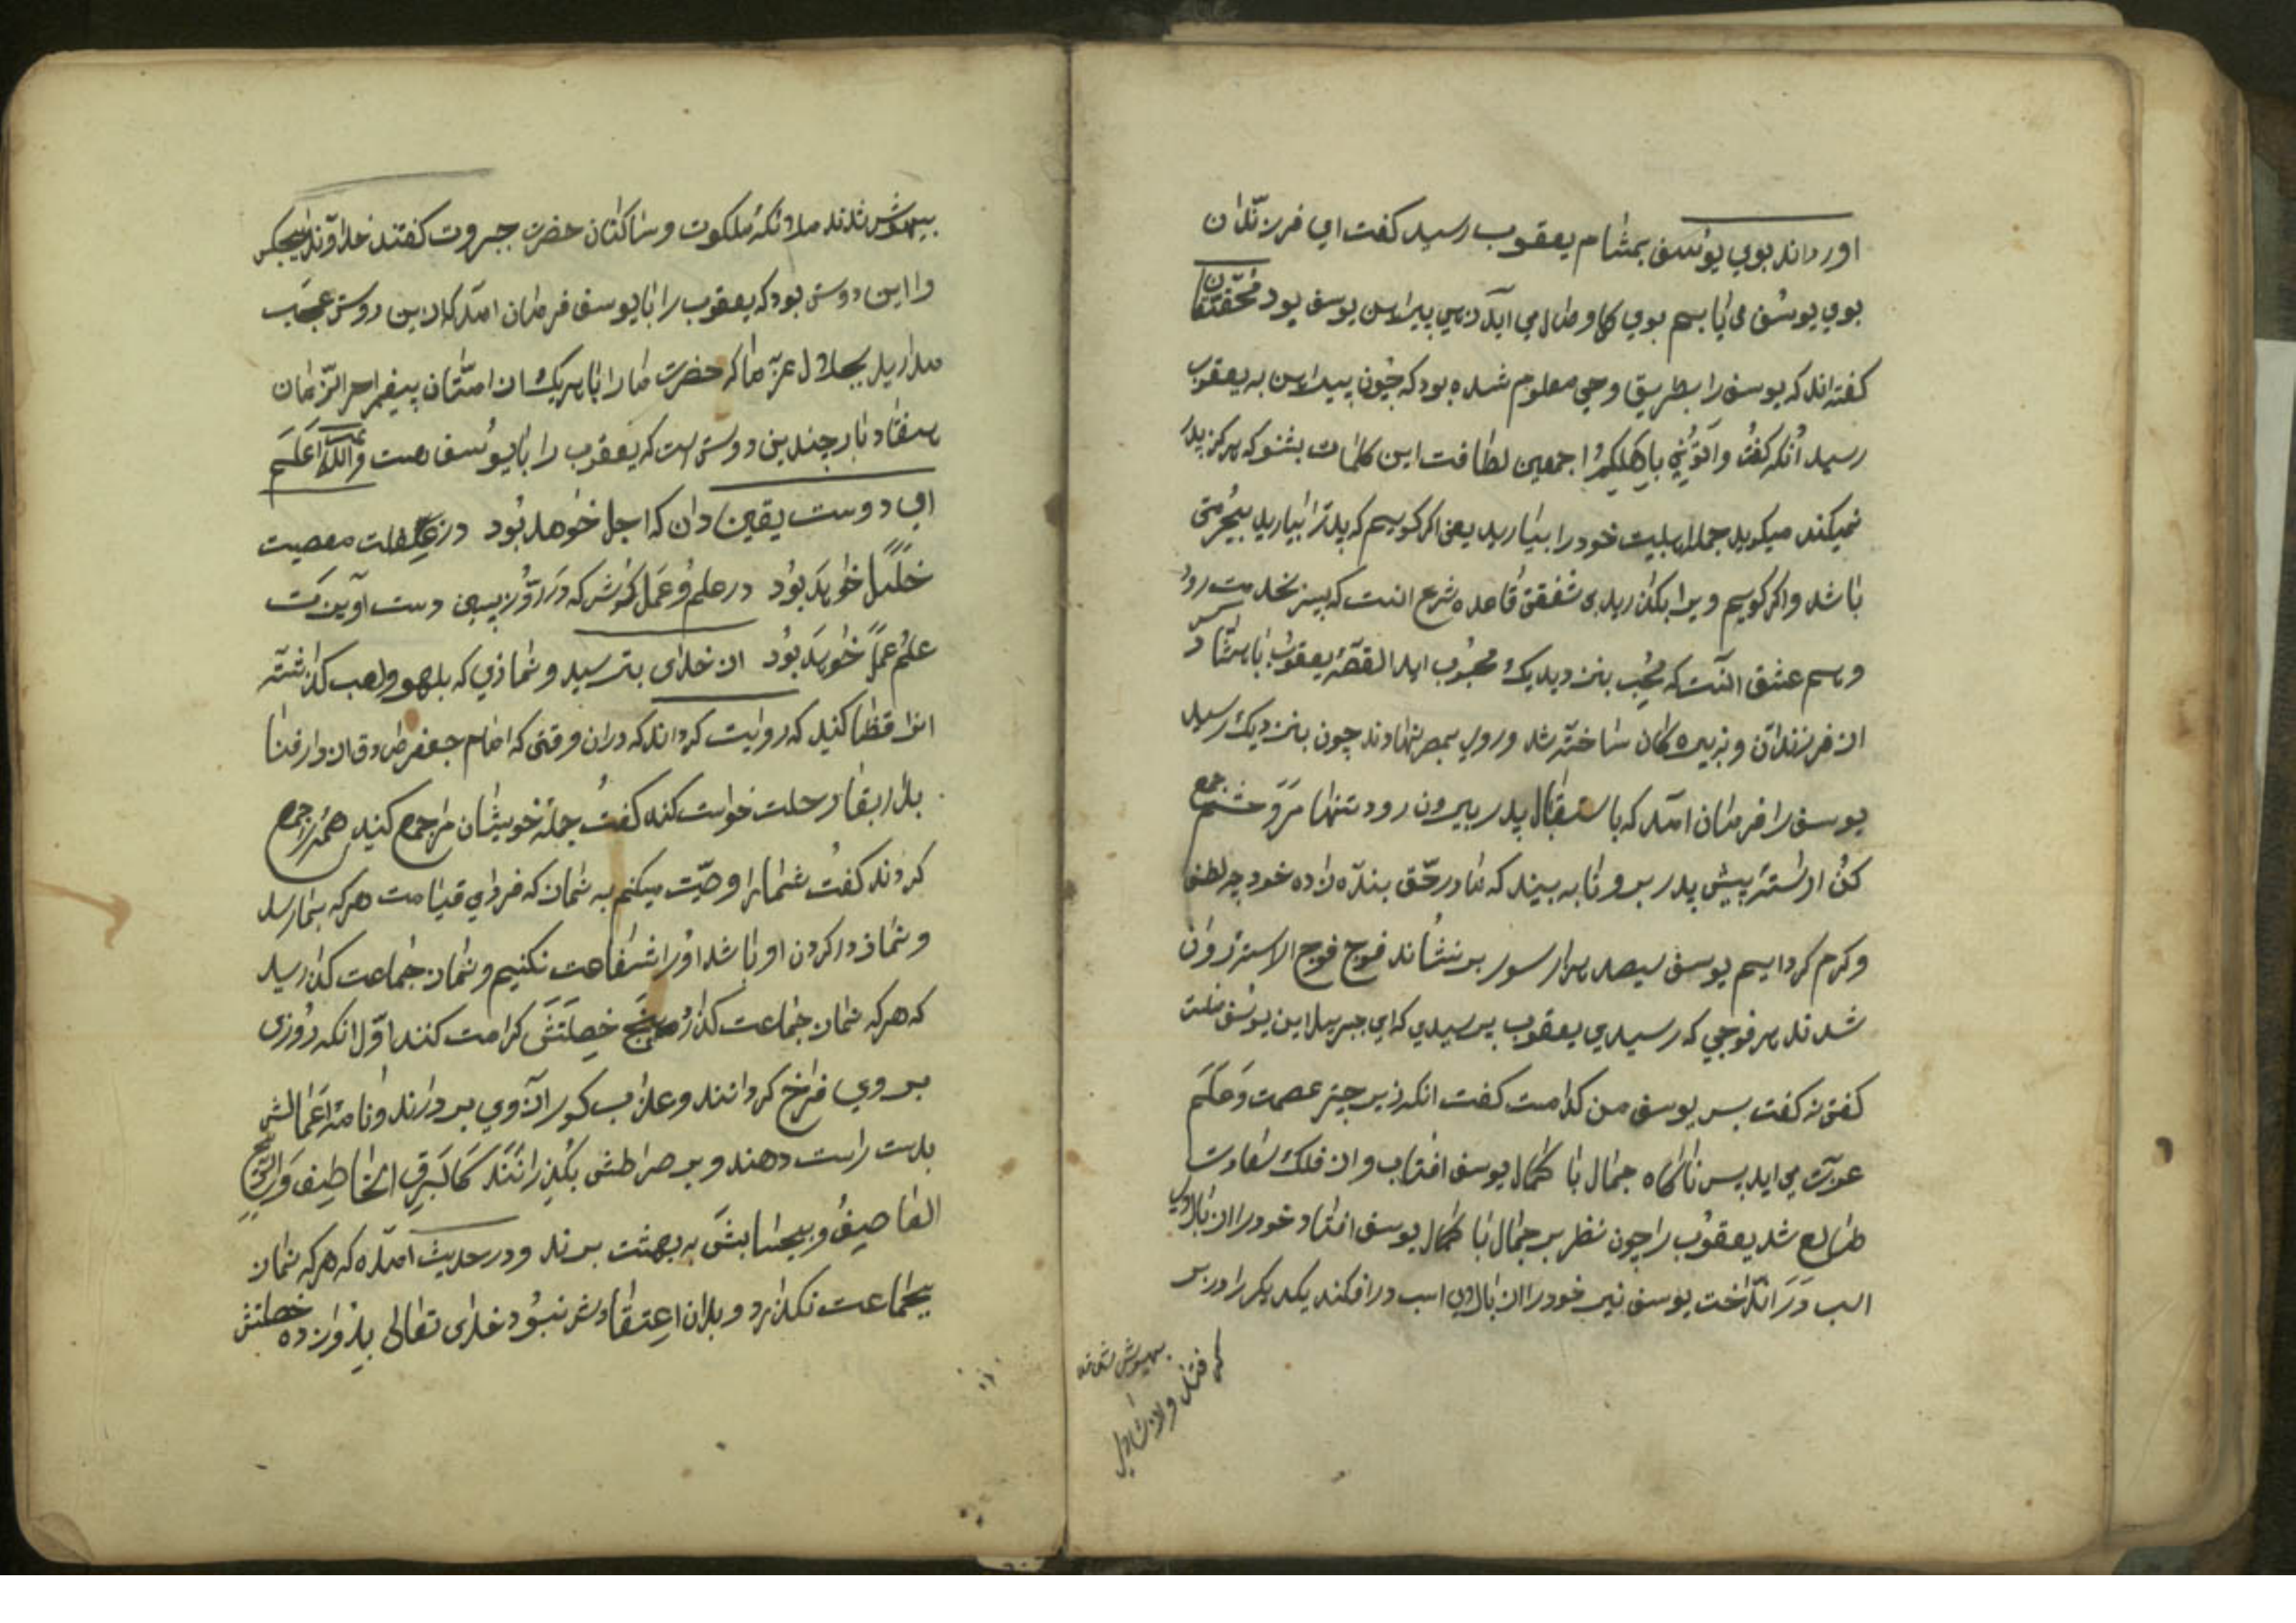 اورداند بوی یوسف بمشام یعقوب رسید کفت ای فرزندان
بوی یوسف می یابم بوی کاوصال می آید زهی پیراهن یوسف بود محققان
کفته اند که یوسف را بطریق وحی معلوم شده بود که چون پیراهن به یعقوب
رسید آنکه کفت وأتونی باهلکم اجمعین لطافت این کلمات بشنو که هرکز پدر
نمیکند میکوید جمله اهلبیت خود را بیارید یعنی اکر کویم که پدر را بیارید بیحرمتی
باشد واکر کویم ویرا بکذارید بی شفقتی قاعده شرع انست که پسر بخدمت رود
ورسم عشق آنست که محب بنزدیک محبوب اید القصه یعقوب با هشتاد کس
از فرزندان ونبیره کان ساخته شد وروی بمصر نهادند چون بنزدیک رسید
یوسف را فرمان امد که باستقبال پدر بیرون رود تنها مرو حشم جمع
کن اراسته پیش پدر برو تا به بیند که ما در حق بنده زاده خود چه لطف
وکرم کرده ایم یوسف سیصد هزار سوار برنشاند فوج فوج الاسته روان
شدند هر فوجی که رسیدی یعقوب پرسیدی که ای جبریل این یوسف منست
کفتی نه کفت پس یوسف من کدامست کفت انکه زیر چتر عصمت وحکم
عزت می اید پس ناکاه جمال با کمال یوسف افتاب وار از فلک سعادت
طالع شد یعقوب را چون نظر بر جمال با کمال یوسف افتاد خود را از بالای
اسب در انداخت یوسف نیز خود را از بالای اسب درافکند یکدیکر را در بر
بیهوش شدند
بیهوش شدند ملائکه ملکوت وساکنان حضرت جبروت کفتند خداوندا هیچکس
را این دوستی بود که یعقوب را با یوسف فرمان امد که ازین دوستی عجب
مدارید بجلال عزة ما که حضرت ما را با هریک از امتان پیغمبر اخر الزمان
هفتاد بار چندین دوستی است که یعقوب را با یوسف هست والله اعلم
ای دوست یقین دان که اجل خواهد بود در غفلت معصیت
خلل خواهد بود در علم وعمل کوش که در روز پسین دست آویزت
علم عمل خواهد بود از خدای بترسید ونمازی که بلهو ولعب کذاشته
انرا قضا کنید که روایت کرده اند که دران وقتی که امام جعفر صادق از دار فنا
بدار بقا رحلت خواست کند کفت جمله خویشان مرا جمع کنید همه را جمع
کردند کفت شما را وصیت میکنم به نماز که فردای قیامت هرکه بنما رسد
ونماز در کردن او باشد او را شفاعت نکنیم ونماز جماعت کذارید
که هرکه نماز جماعت کذارد پنج خصلتش کرامت کنند اول انکه روزی
بر وی فراخ کردانند وعذاب کور از وی بردارند ونامه اعمالش
بدست راست دهند وبر صراطش بکذرانند کالبرق الخاطف والریح
العاصف وبیحسابش به بهشت برند ودر حدیث امده که هرکه نماز
بجماعت نکذارد وبدان اعتقادش نبود خدای تعالی بدوازده خصلتش